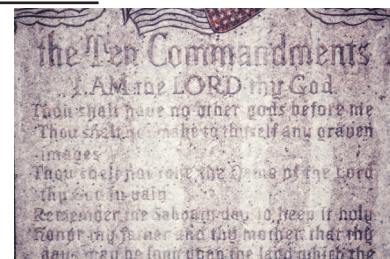 the Ten Commandments
I AM the LORD thy God.
Thou shalt have no other gods before me
Thou shalt not make to thyself any graven
images
Thou shalt not take the Name of the Lord
thy God in vain
Remember the Sabbath day, to keep it holy
Honor thy father and thy mother that thy
days may be long upon the land which the